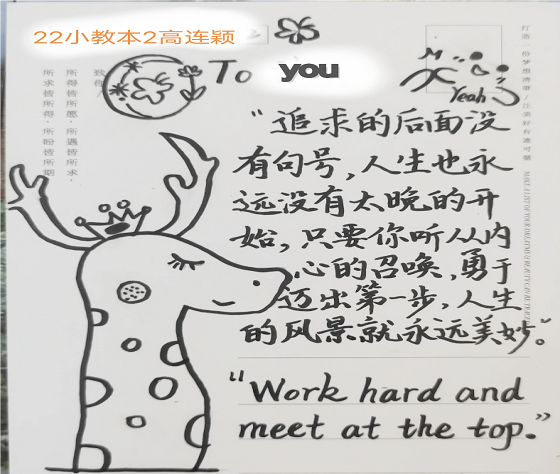 22小教本2高连颖
To you
Yeah
所求皆所得,所盼皆所期
所得皆所愿,所遇皆所求.
"追求的后面没
有句号,人生也永
远没有太晚的开
始,只要你听从内
心的召唤,勇于
迈出第一步,人生
的风景就永远美妙。
"Work hard and
meet at the top."